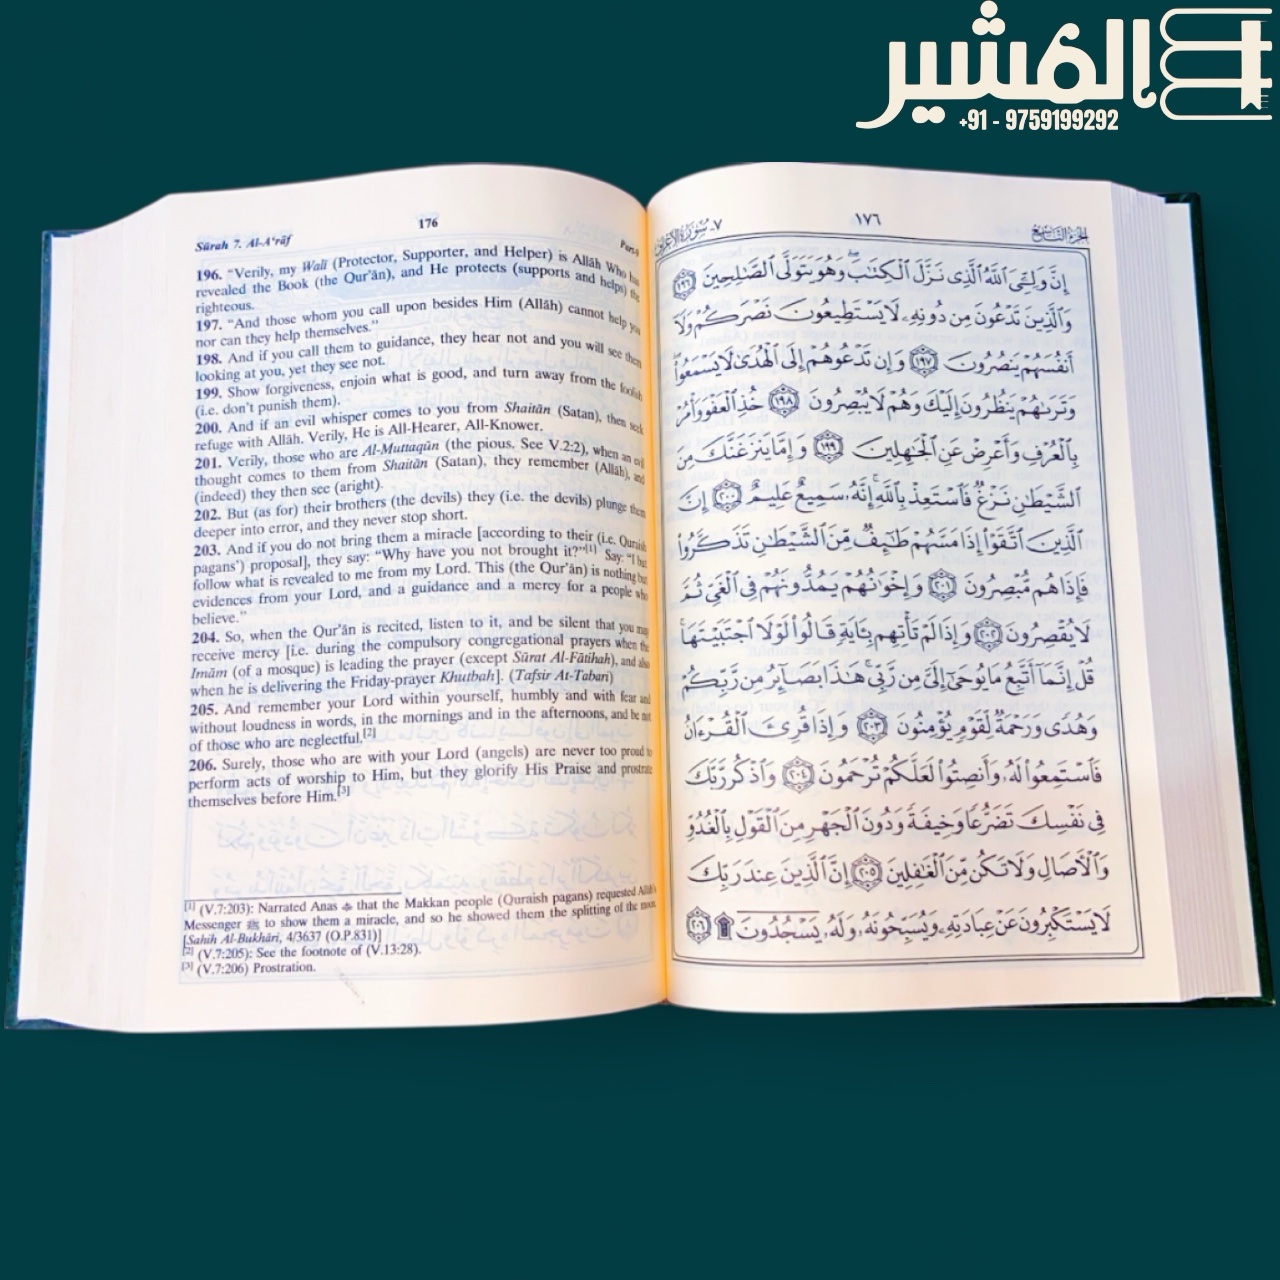 المشير
+91 - 9759199292
176
Sūrah 7. Al-A'rāf
196. “Verily, my Walī (Protector, Supporter, and Helper) is Allāh Who has
revealed the Book (the Qur'ān), and He protects (supports and helps) the
righteous.
197. “And those whom you call upon besides Him (Allāh) cannot help you
nor can they help themselves.”
198. And if you call them to guidance, they hear not and you will see them
looking at you, yet they see not.
199. Show forgiveness, enjoin what is good, and turn away from the foolish
(i.e. don't punish them).
200. And if an evil whisper comes to you from Shaitān (Satan), then seek
refuge with Allāh. Verily, He is All-Hearer, All-Knower.
201. Verily, those who are Al-Muttaqūn (the pious. See V.2:2), when an evil
thought comes to them from Shaitān (Satan), they remember (Allāh), and
(indeed) they then see (aright).
202. But (as for) their brothers (the devils) they (i.e. the devils) plunge them
deeper into error, and they never stop short.
203. And if you do not bring them a miracle [according to their (i.e. Quraish
pagans') proposal], they say: “Why have you not brought it?”[1] Say: “I but
follow what is revealed to me from my Lord. This (the Qur'ān) is nothing but
evidences from your Lord, and a guidance and a mercy for a people who
believe.”
204. So, when the Qur'ān is recited, listen to it, and be silent that you may
receive mercy [i.e. during the compulsory congregational prayers when the
Imām (of a mosque) is leading the prayer (except Sūrat Al-Fātihah), and also
when he is delivering the Friday-prayer Khutbah]. (Tafsir At-Tabari)
205. And remember your Lord within yourself, humbly and with fear and
without loudness in words, in the mornings and in the afternoons, and be not
of those who are neglectful.[2]
206. Surely, those who are with your Lord (angels) are never too proud to
perform acts of worship to Him, but they glorify His Praise and prostrate
themselves before Him.[3]
[1] (V.7:203): Narrated Anas that the Makkan people (Quraish pagans) requested Allāh's
Messenger ﷺ to show them a miracle, and so he showed them the splitting of the moon.
[Sahih Al-Bukhāri, 4/3637 (O.P.831)]
[2] (V.7:205): See the footnote of (V.13:28).
[3] (V.7:206) Prostration.
الجزء التاسع
١٧٦
٧- سورة الأعراف
إِنَّ وَلِـِّۧىَ ٱللَّهُ ٱلَّذِى نَزَّلَ ٱلْكِتَٰبَ ۖ وَهُوَ يَتَوَلَّى ٱلصَّٰلِحِينَ ١٩٦
وَٱلَّذِينَ تَدْعُونَ مِن دُونِهِۦ لَا يَسْتَطِيعُونَ نَصْرَكُمْ وَلَآ
أَنفُسَهُمْ يَنصُرُونَ ١٩٧ وَإِن تَدْعُوهُمْ إِلَى ٱلْهُدَىٰ لَا يَسْمَعُوا۟ ۖ
وَتَرَىٰهُمْ يَنظُرُونَ إِلَيْكَ وَهُمْ لَا يُبْصِرُونَ ١٩٨ خُذِ ٱلْعَفْوَ وَأْمُرْ
بِٱلْعُرْفِ وَأَعْرِضْ عَنِ ٱلْجَٰهِلِينَ ١٩٩ وَإِمَّا يَنزَغَنَّكَ مِنَ
ٱلشَّيْطَٰنِ نَزْغٌ فَٱسْتَعِذْ بِٱللَّهِ ۚ إِنَّهُۥ سَمِيعٌ عَلِيمٌ ٢٠٠ إِنَّ
ٱلَّذِينَ ٱتَّقَوْا۟ إِذَا مَسَّهُمْ طَٰٓئِفٌ مِّنَ ٱلشَّيْطَٰنِ تَذَكَّرُوا۟
فَإِذَا هُم مُّبْصِرُونَ ٢٠١ وَإِخْوَٰنُهُمْ يَمُدُّونَهُمْ فِى ٱلْغَىِّ ثُمَّ
لَا يُقْصِرُونَ ٢٠٢ وَإِذَا لَمْ تَأْتِهِم بِـَٔايَةٍ قَالُوا۟ لَوْلَا ٱجْتَبَيْتَهَا ۚ
قُلْ إِنَّمَآ أَتَّبِعُ مَا يُوحَىٰٓ إِلَىَّ مِن رَّبِّى ۚ هَٰذَا بَصَآئِرُ مِن رَّبِّكُمْ
وَهُدًى وَرَحْمَةٌ لِّقَوْمٍ يُؤْمِنُونَ ٢٠٣ وَإِذَا قُرِئَ ٱلْقُرْءَانُ
فَٱسْتَمِعُوا۟ لَهُۥ وَأَنصِتُوا۟ لَعَلَّكُمْ تُرْحَمُونَ ٢٠٤ وَٱذْكُر رَّبَّكَ
فِى نَفْسِكَ تَضَرُّعًا وَخِيفَةً وَدُونَ ٱلْجَهْرِ مِنَ ٱلْقَوْلِ بِٱلْغُدُوِّ
وَٱلْءَاصَالِ وَلَا تَكُن مِّنَ ٱلْغَٰفِلِينَ ٢٠٥ إِنَّ ٱلَّذِينَ عِندَ رَبِّكَ
لَا يَسْتَكْبِرُونَ عَنْ عِبَادَتِهِۦ وَيُسَبِّحُونَهُۥ وَلَهُۥ يَسْجُدُونَ ۩ ٢٠٦